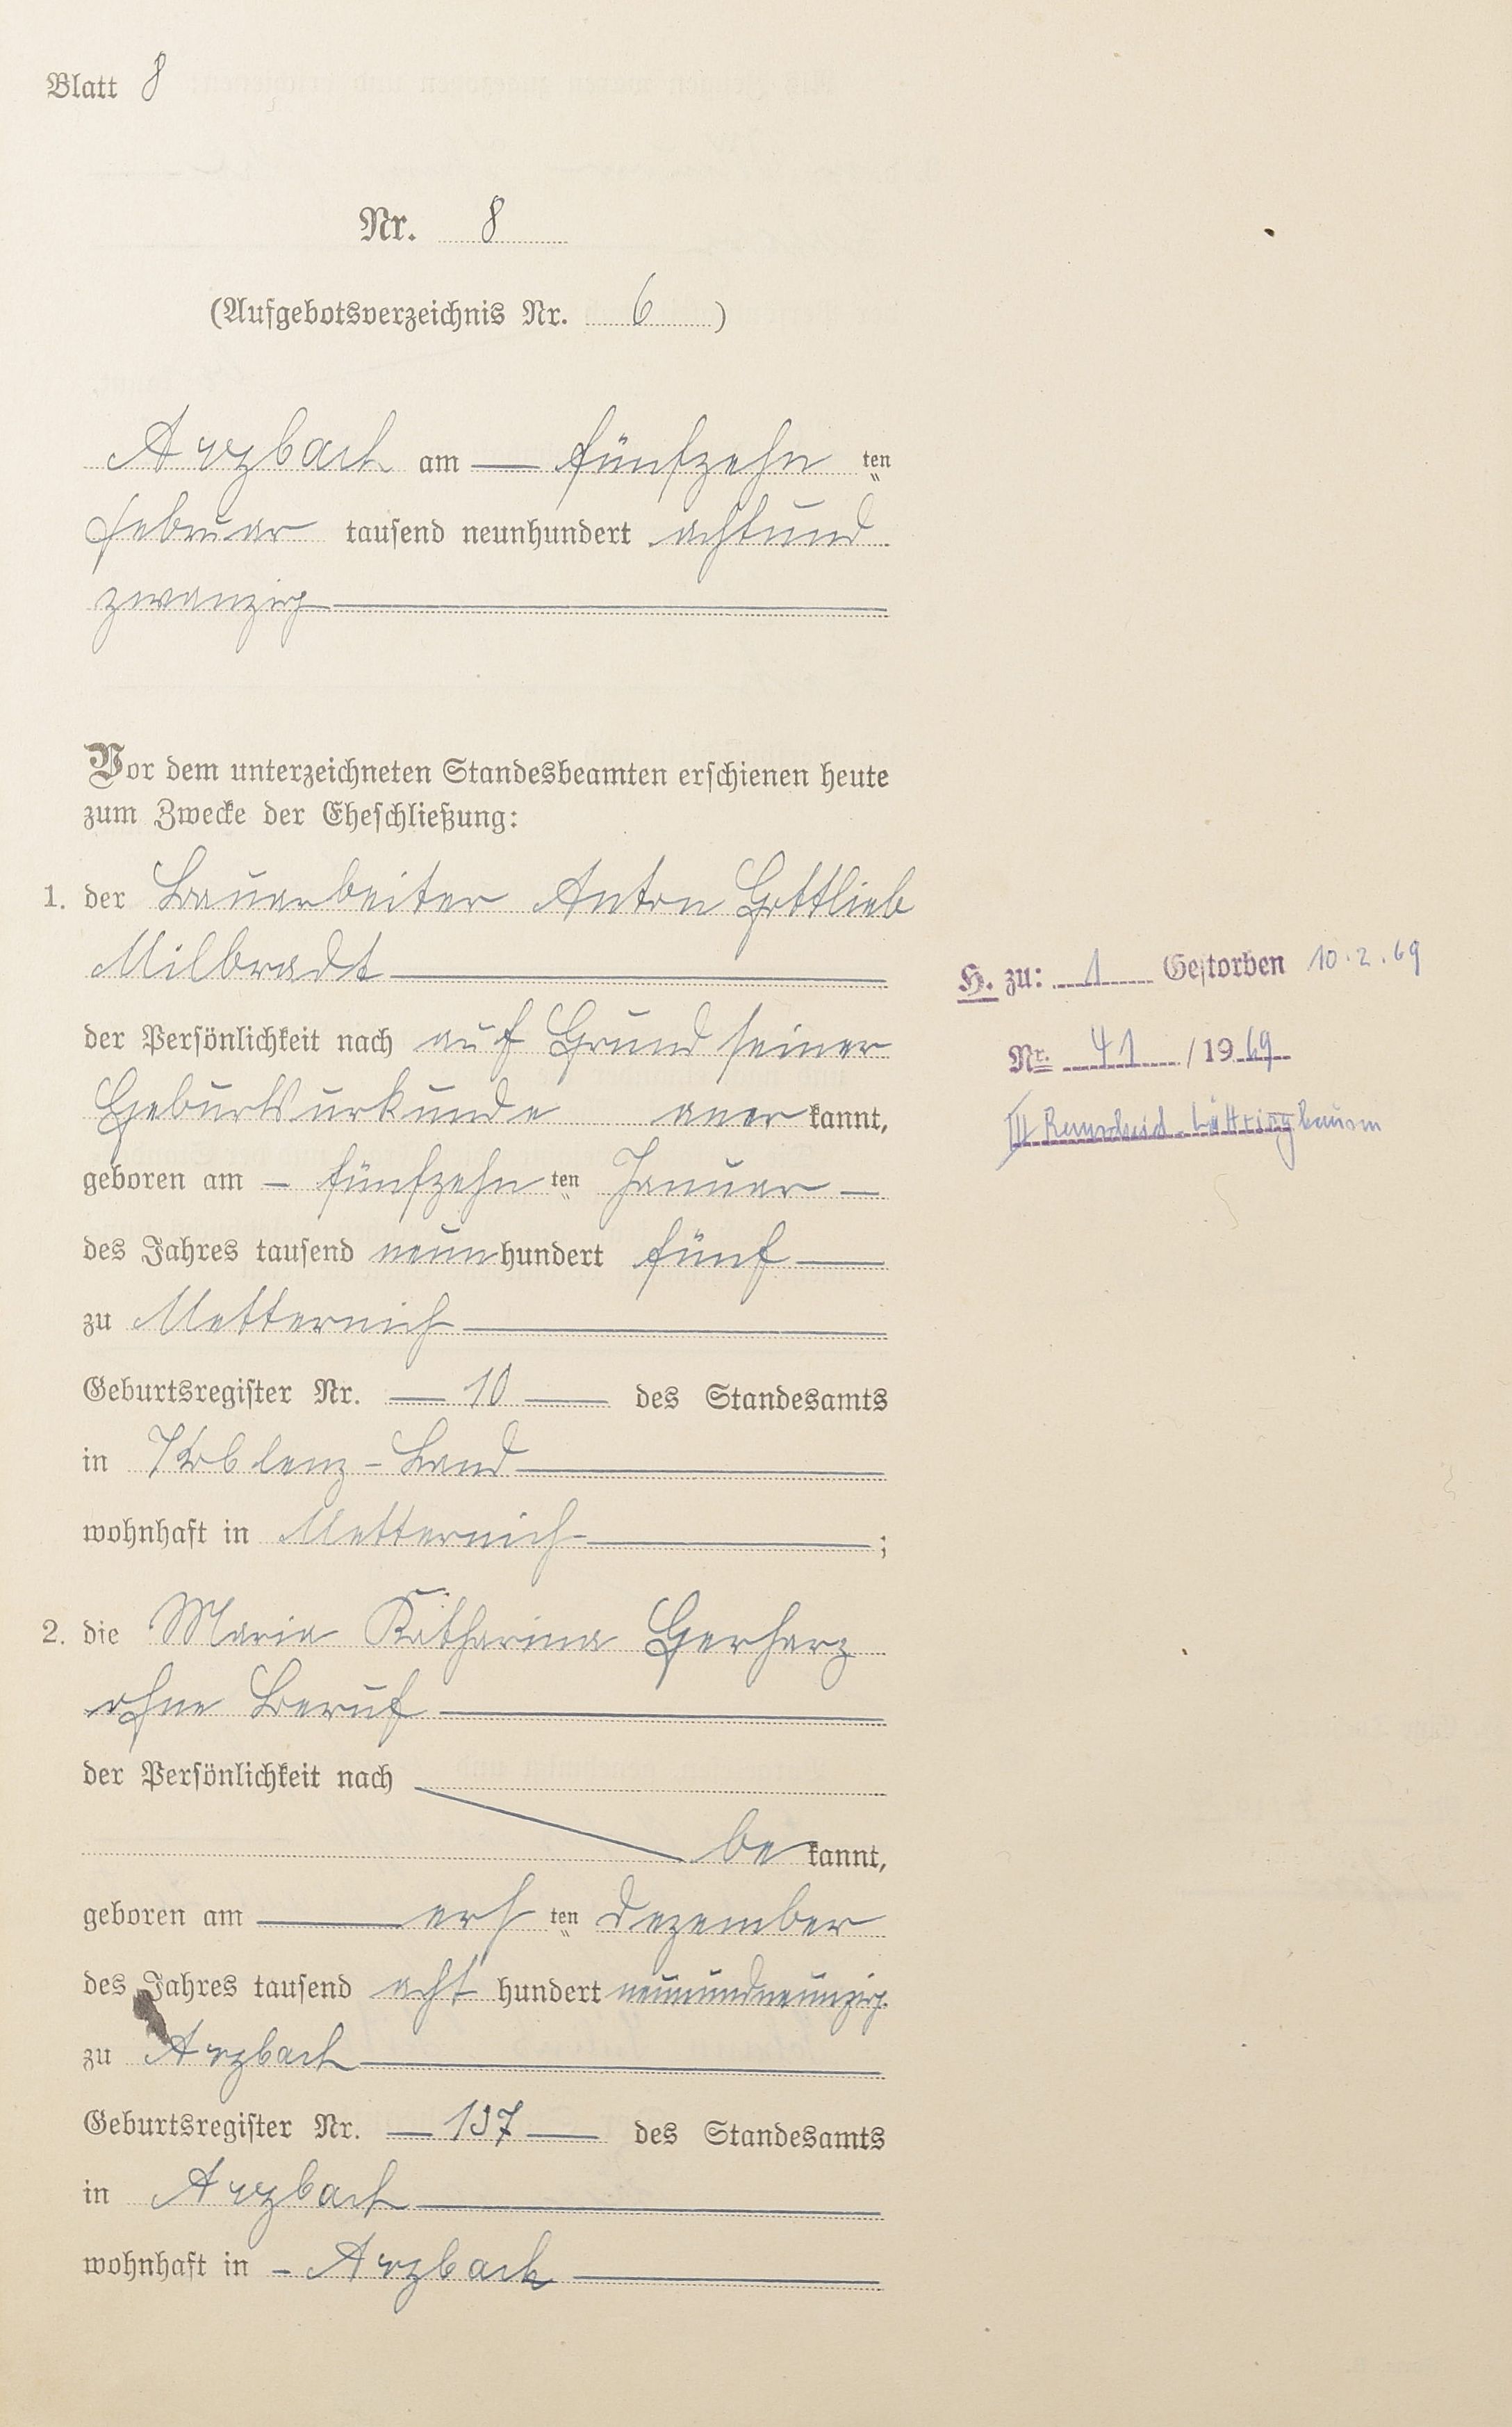 Blatt 8
Nr. 8
(Aufgebotsverzeichnis Nr. 6)
Arzbach am — fünfzehn ten
Februar tausend neunhundert achtund
zwanzig
Vor dem unterzeichneten Standesbeamten erschienen heute
zum Zwecke der Eheschließung:
1. der Bauarbeiter Anton Gottlieb
Milbradt
der Persönlichkeit nach auf Grund seiner
Geburtsurkunde anerkannt,
geboren am – fünfzehn ten Januar –
des Jahres tausend neunhundert fünf
zu Metternich
Geburtsregister Nr. — 10 — des Standesamts
in Koblenz-Land
wohnhaft in Metternich ;
2. die Maria Katharina Gerharz
ohne Beruf
der Persönlichkeit nach
bekannt,
geboren am — ers ten Dezember
des Jahres tausend acht hundert neunundneunzig
zu Arzbach
Geburtsregister Nr. — 137 — des Standesamts
in Arzbach
wohnhaft in – Arzbach
H. zu: 1 Gestorben 10.2.69
Nr. 41 / 1969
III Remscheid-Lüttringhausen